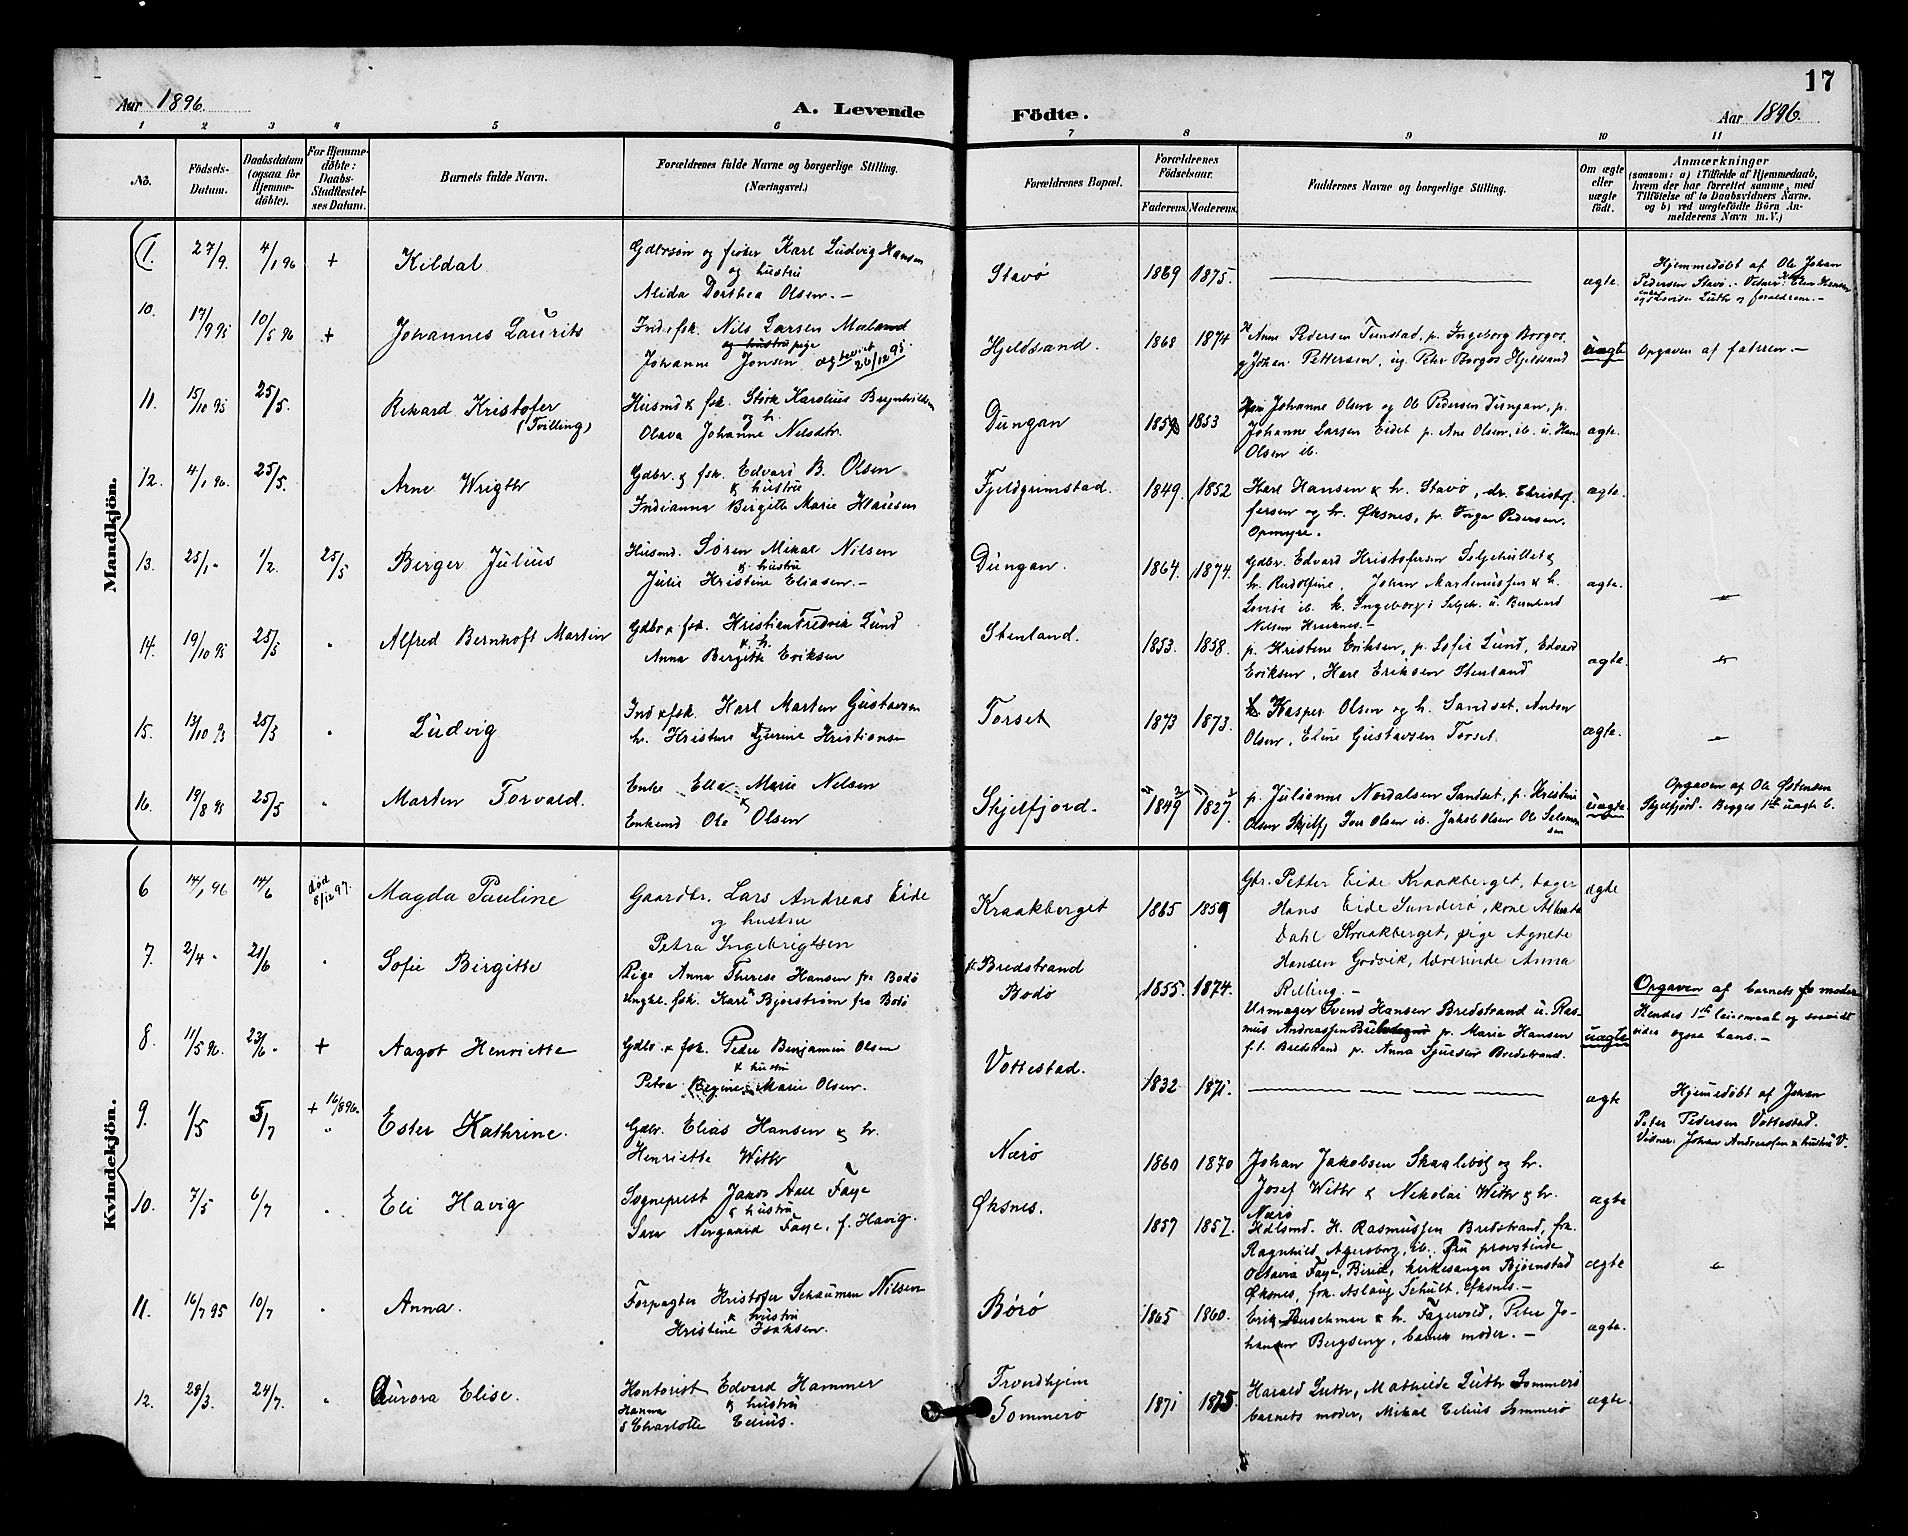 17
Aar 1896. A. Levende Födte. Aar 1896.
1 2 3 4 5 6 7 8 9 10 11
No. Födsels-Datum. Daabsdatum (ogsaa for Hjemme-döbte). For Hjemme-döbte: Daabs-Stadfæstel-ses Datum. Barnets fulde Navn. Forældrenes fulde Navne og borgerlige Stilling. (Næringsvei.) Forældrenes Bopæl. Forældrenes Födselsaar. Faderens. Moderens. Faddernes Navne og borgerlige Stilling. Om ægte eller uægte födt. Anmærkninger (saasom: a) i Tilfælde af Hjemmedaab, hvem der har forrettet samme, med Tilföielse af to Daabsvidners Navne, og b) ved uægtefödte Börn An-melderens Navn m. V.)
Mandkjön.
1. 27/9. 4/1 96 + Kildal
Gdbrsøn og fisker Karl Ludvig Hansen
og hustru
Alida Dorthea Olsen. —
Stavø 1869 1875. ægte.
Hjemmedøbt af Ole Johan
Pedersen Stavø. Vidner: Elen Hansen
og Lovise Luthr og forældrene. —
10. 17/9 95 10/5 96 + Johannes Laurits
Ind. fsk. Nils Larsen Maland
og hustru pige
Johanne Jonsen ægteviet 26/12 95.
Hjeldsand. 1868 1874
Anne Pedersen Tunstad, p. Ingeborg Borgos
g Johan Pettersen, ug. Peter Borgos Hjeldsand
uægte Opgaven af fadren. —
11. 15/10 95 25/5. Rikard Kristofer
(Tvilling)
Husmd & fsk. Størk Karolius Brynhildsen
og h.
Olava Johanne Nilsdtr.
Dungan 1859 1853
Johanne Olsen og Ole Pedersen Dungan, p.
Johanne Larsen Eidet p. Ane Olsen, ib. u. Hans
Olsen ib.
ægte.
12. 4/1 96. 25/5. Arne Wrigthr
Gdbr. & fsk. Edvard B. Olsen
& hustru
Indianna Bergitte Marie Klausen
Fjeldgrimstad. 1849. 1852
Karl Hansen & h. Stavø, dr. Christof-
fersen og hr. Øksnes, p. Inga Pedersen,
Opmyre.
ægte.
13. 25/1 " 1/2. 25/5 Berger Julius
Husmd. Søren Mikal Nilsen
& hustru
Julie Kristine Eliasen. —
Dungan. 1864. 1874.
Gdbr. Edvard Kristofersen Seljehullet &
h. Rudolfine, Johan Martinussen & h.
Lovise ib. k. Ingeborg i Seljeh. u. Bernhard
Nilsen
ægte.
14. 19/10 95 25/5 " Alfred Bernhoft Martin
Gdbr & fsk. Kristian Fredrik Lund
& h.
Anna Bergitte Eriksen
Stenland. 1853. 1858.
p. Kristine Eriksen, p. Sofie Lund, Edvard
Eriksen, Karl Eriksen Stenland
ægte.
15. 13/10 25/5 " Ludvig
Ind & fsk. Karl Marten Gustavsen
h. Kristine Gurine Kristiansen
Torset 1873 1873.
Kasper Olsen og h. Sandset, Anton
Olsen, Eline Gustavsen Torset.
ægte.
16. 19/8 95 25/5 " Marten Torvald.
Enke Ella Marie Nilsen
&
Enkemd Ole Olsen
Skjelfjord. 1849 1827
p. Julianne Nordalsen Sandset, p. Kristine
Olsen Skjelfj Iver Olsen ib. Jakob Olsen Ole Salomon
sen
uægte.
Opgaven af Ole Østensen
Skjelfjord. Begges 1ste uægte b.
Kvindekjön.
6 14/1 96 14/6 død 5/12 97. Magda Pauline
Gaardbr. Lars Andreas Eide
og hustru
Petra Ingebrigtsen
Kraakberget 1865 1859
Gbr. Petter Eide Kraakberget, bager
Hans Eide Sunderø, kone Alberta
Dahl Kraakberget, pige Agnete
Hansen Godvik, lærerinde Anna
Rilling. —
ægte
7. 2/4 " 21/6 " Sofie Birgitte
Pige Anna Therese Hansen fra Bodø
Ungk. fsk. Karl Bjørstrøm fra Bodø
Bredstrand
Bodø 1855. 1874.
Urmager Svend Hansen Bredstrand u. Ras-
mus Andreassen p. Marie Hansen
f. t. Bredstrand p. Anna Sjursen Bredstrand.
uægte
Opgaven af barnets moder
Hendes 1ste leiermaal og saavidt
vides ogsaa hans. —
8. 11/5 96. 23/6 " + Aagot Henriette
Gdbr. & fsk. Peder Benjamin Olsen
& hustru
Petra Regine Marie Olsen.
Vottestad. 1832 1871. ægte
Hjemmedøbt af Johan
Peter Pedersen Vottestad.
Vidner: Johan Andreassen & hustru V.
9. 1/5 5/7 + 16/8 96. " Ester Kathrine.
Gdbr. Elias Hansen & h.
Henriette Withr
Nærø 1860 1870
Johan Jakobsen Skaalebø og hr.
Josef Withr & Nikolai Withr & h.
Nærø
ægte
10. 7/5 6/7 " Eli Havig
Sogneprest Jakob Aall Faye
& hustru
Sara Norgaard Faye, f. Havig.
Øksnes. 1857 1857.
Hdlsmd. H. Rasmussen Bredstrand, frk.
Ragnhild Agersborg, ib., Fru provstinde
Octavia Faye, Birid, kirkesanger Bjørnstad
Øksnes, frk. Aslaug Schult, Øksnes —
ægte
11. 16/7 95 10/7 " Anna.
Forpagter Kristofer Schaumen Nilsen
& hustru
Kristine Isaksen.
Børø 1865 1860.
Erik Buschman & h. Fagervold, Peter Jo-
hansen Bergseng, barnets moder. —
ægte.
12. 28/3. 24/7. " Aurora Elise.
Kontorist Edvard Hammer
Hanna & hustru
Charlotte Edius.
Trondhjem
Sommerø 1871 1875
Harald Luthr, Mathilde Luthr Sommerø
barnets moder, Mikal Edius Sommerø
ægte.